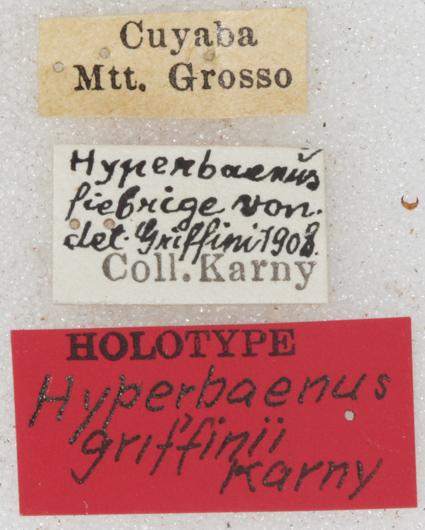 Cuyaba
Mtt. Grosso
Hyperbaenus
fiebrige von.
det. Griffini 1908.
Coll. Karny
HOLOTYPE
Hyperbaenus
griffinii
Karny